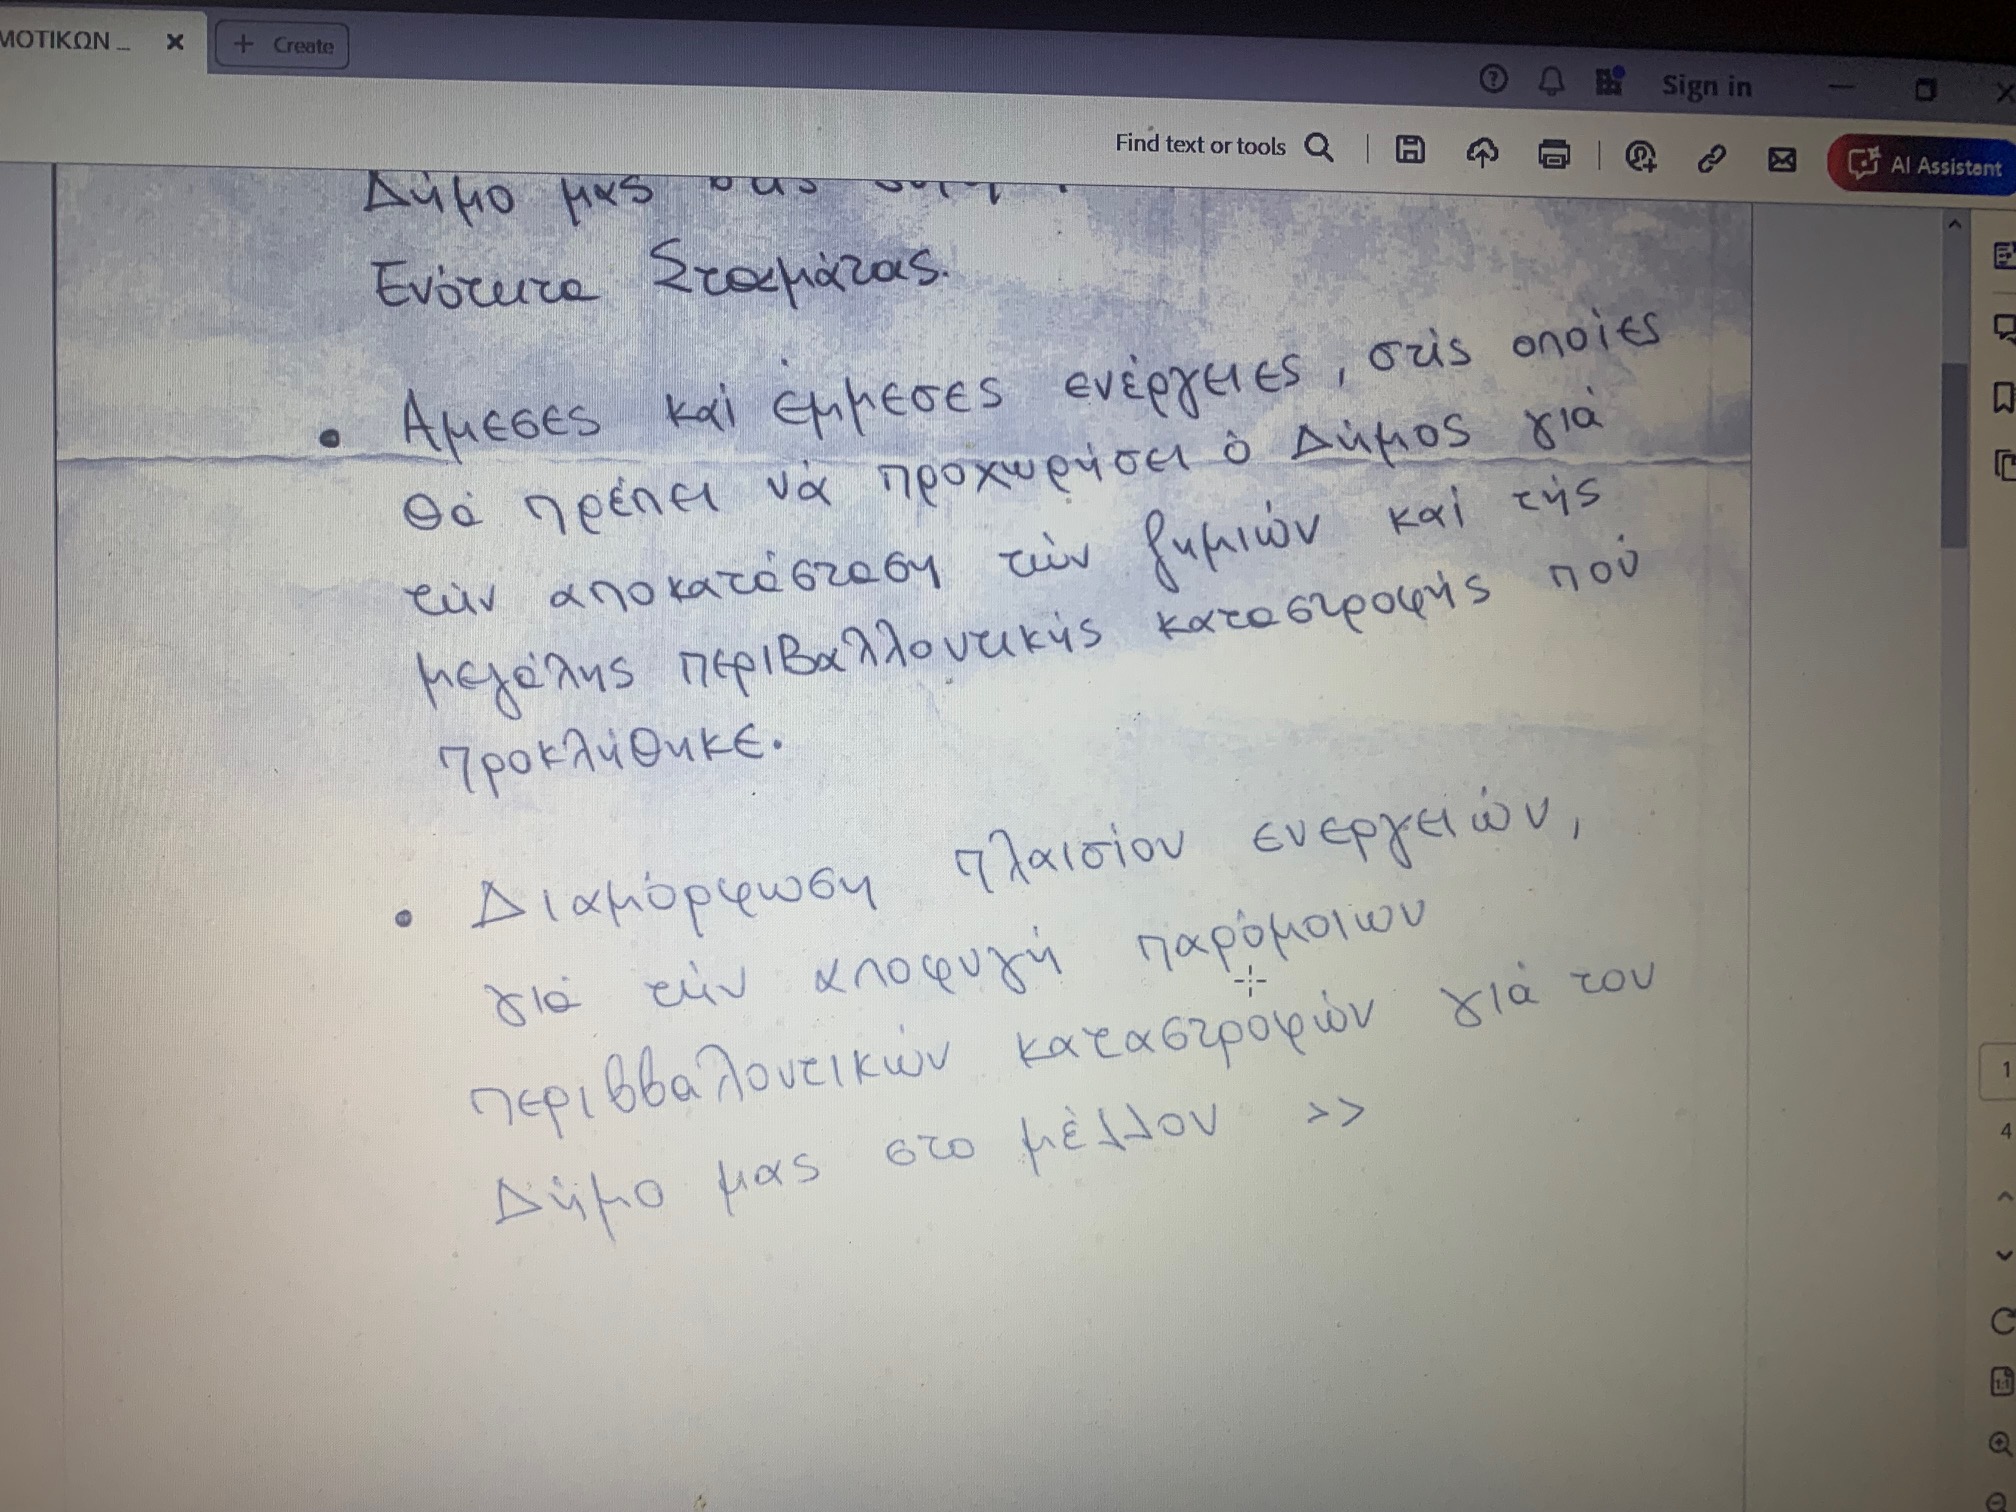 ΜΟΤΙΚΩΝ _ × + Create
Sign in
Find text or tools
AI Assistant
Δήμο μας
Ενότητα Σταμάτας.
• Αμεσες καί έμμεσες ενέργειες, στίς οποίες
θά πρέπει νά προχωρήσει ό Δήμος γιά
τήν αποκατάσταση τών ζημιών καί τής
μεγάλης περιβαλλοντικής καταστροφής πού
προκλήθηκε.
• Διαμόρφωση πλαισίου ενεργειών,
γιά τήν αποφυγή παρόμοιων
περιββαλοντικών καταστροφών γιά τον
Δήμο μας στο μέλλον >>
1
4